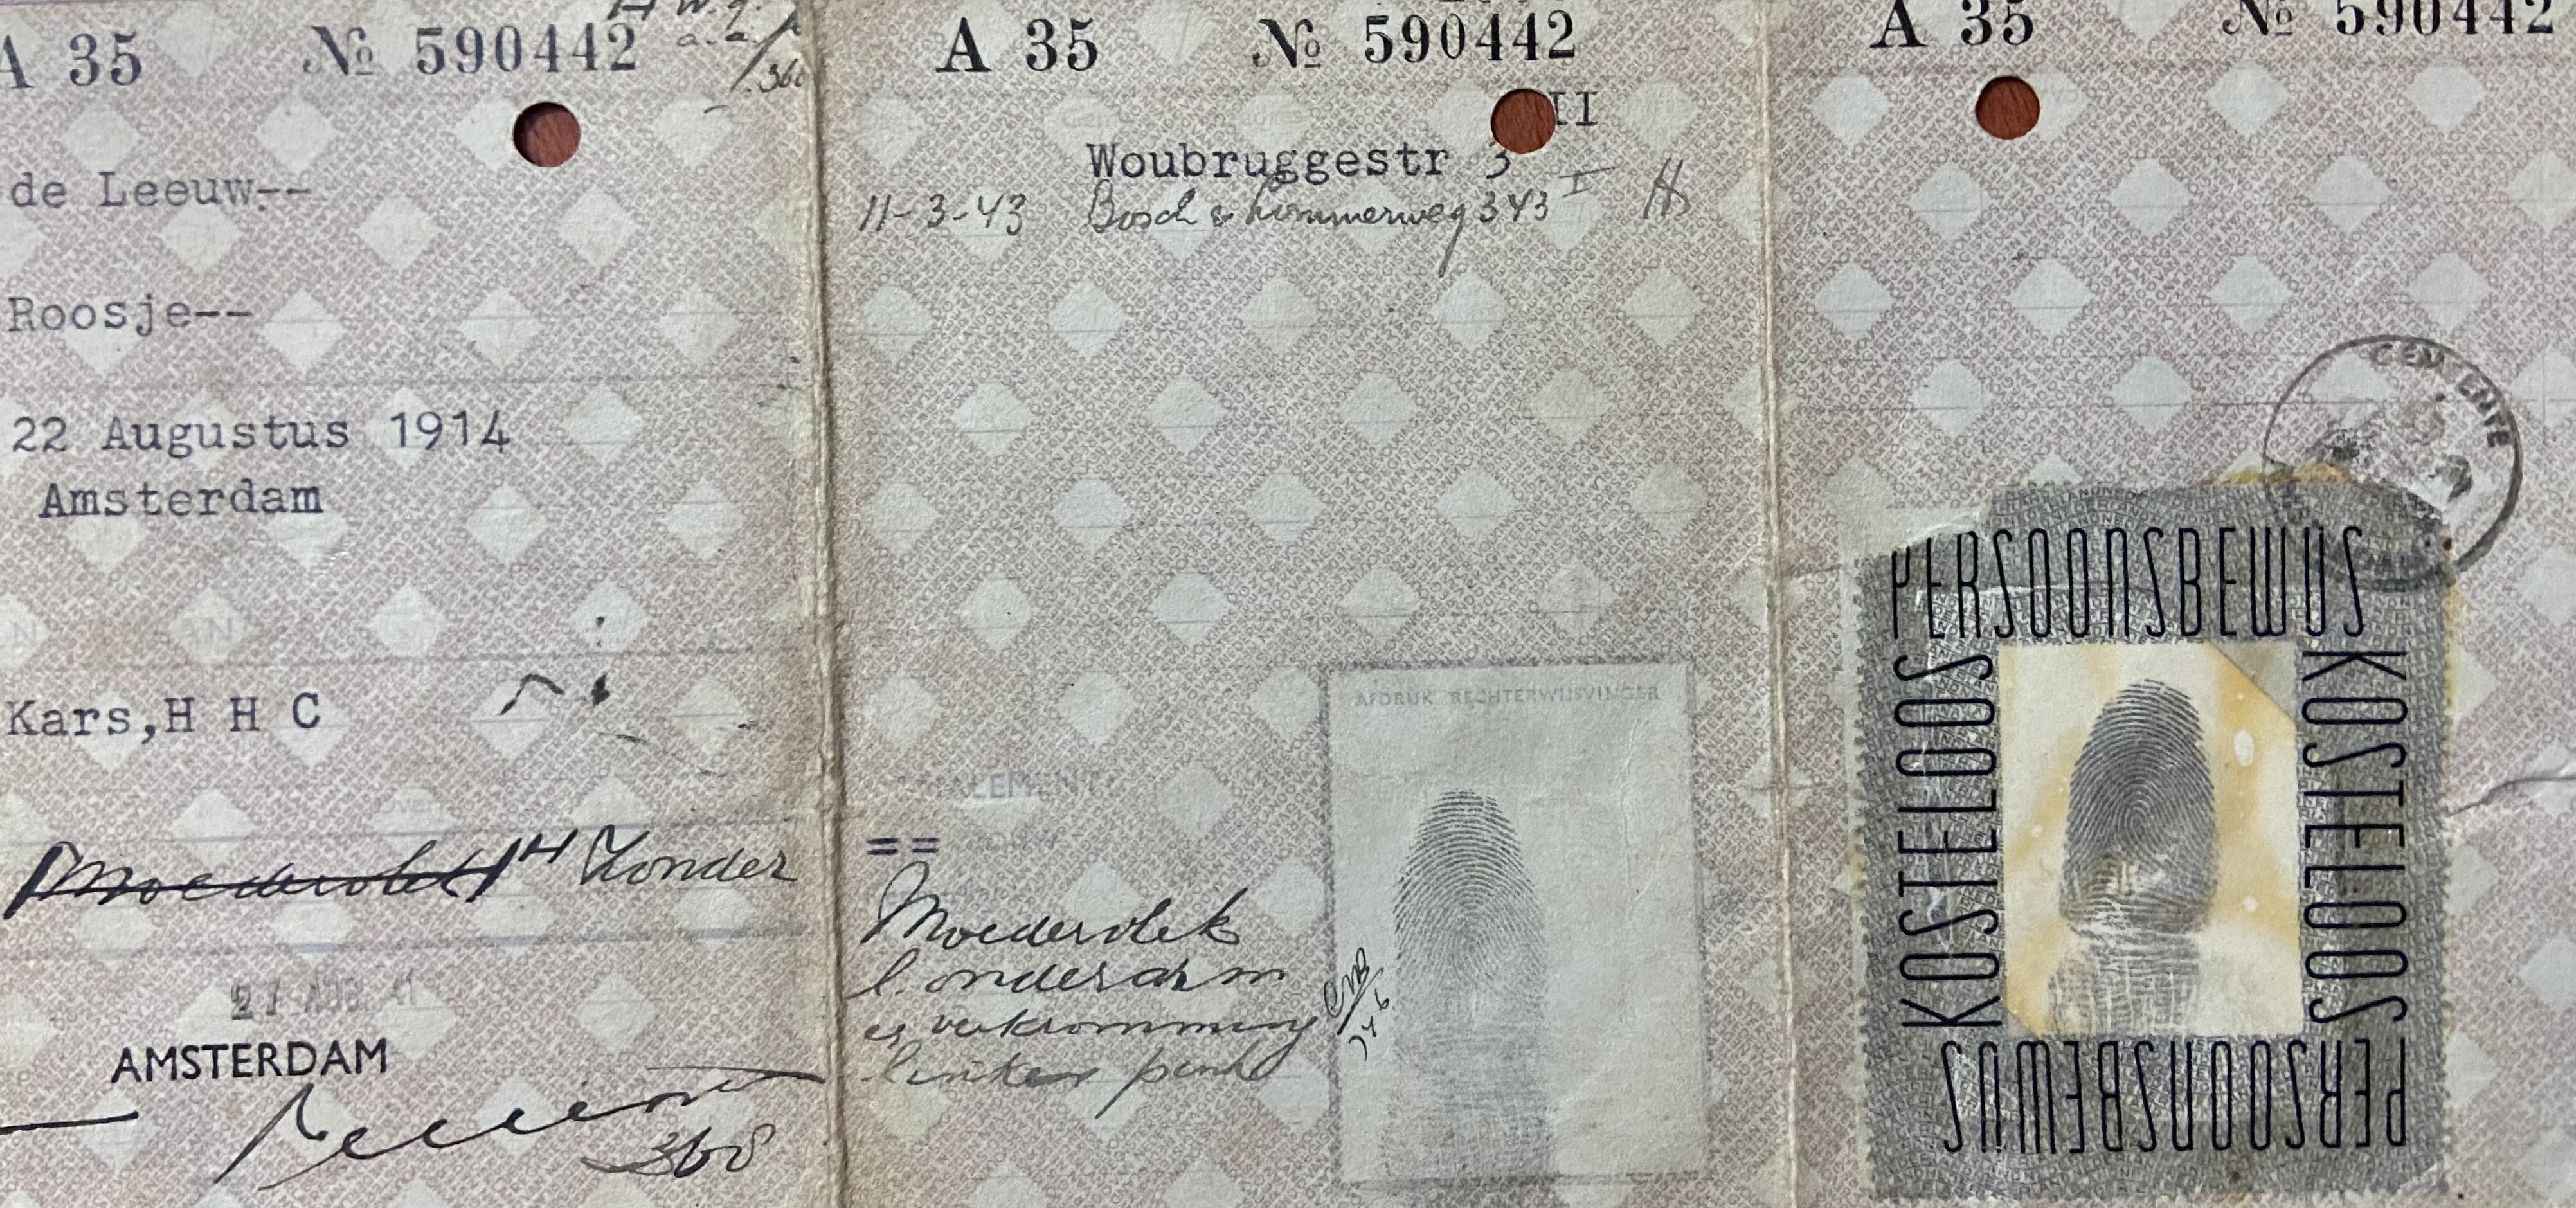 A 35 № 590442
de Leeuw--
Roosje--
22 Augustus 1914
Amsterdam
Kars,H H C
Moedervlek H Zonder
27 AUG 41
AMSTERDAM
368
A 35 № 590442
II
Woubruggestr 3
11-3-43 Bosch & Lommerweg 343 I
==
Moedervlek
l. onderarm
en verkromming
linker pink
AFDRUK RECHTERWIJSVINGER
A 35 № 590442
GEMEENTE
PERSOONSBEWIJS
KOSTELOOS
KOSTELOOS
PERSOONSBEWIJS